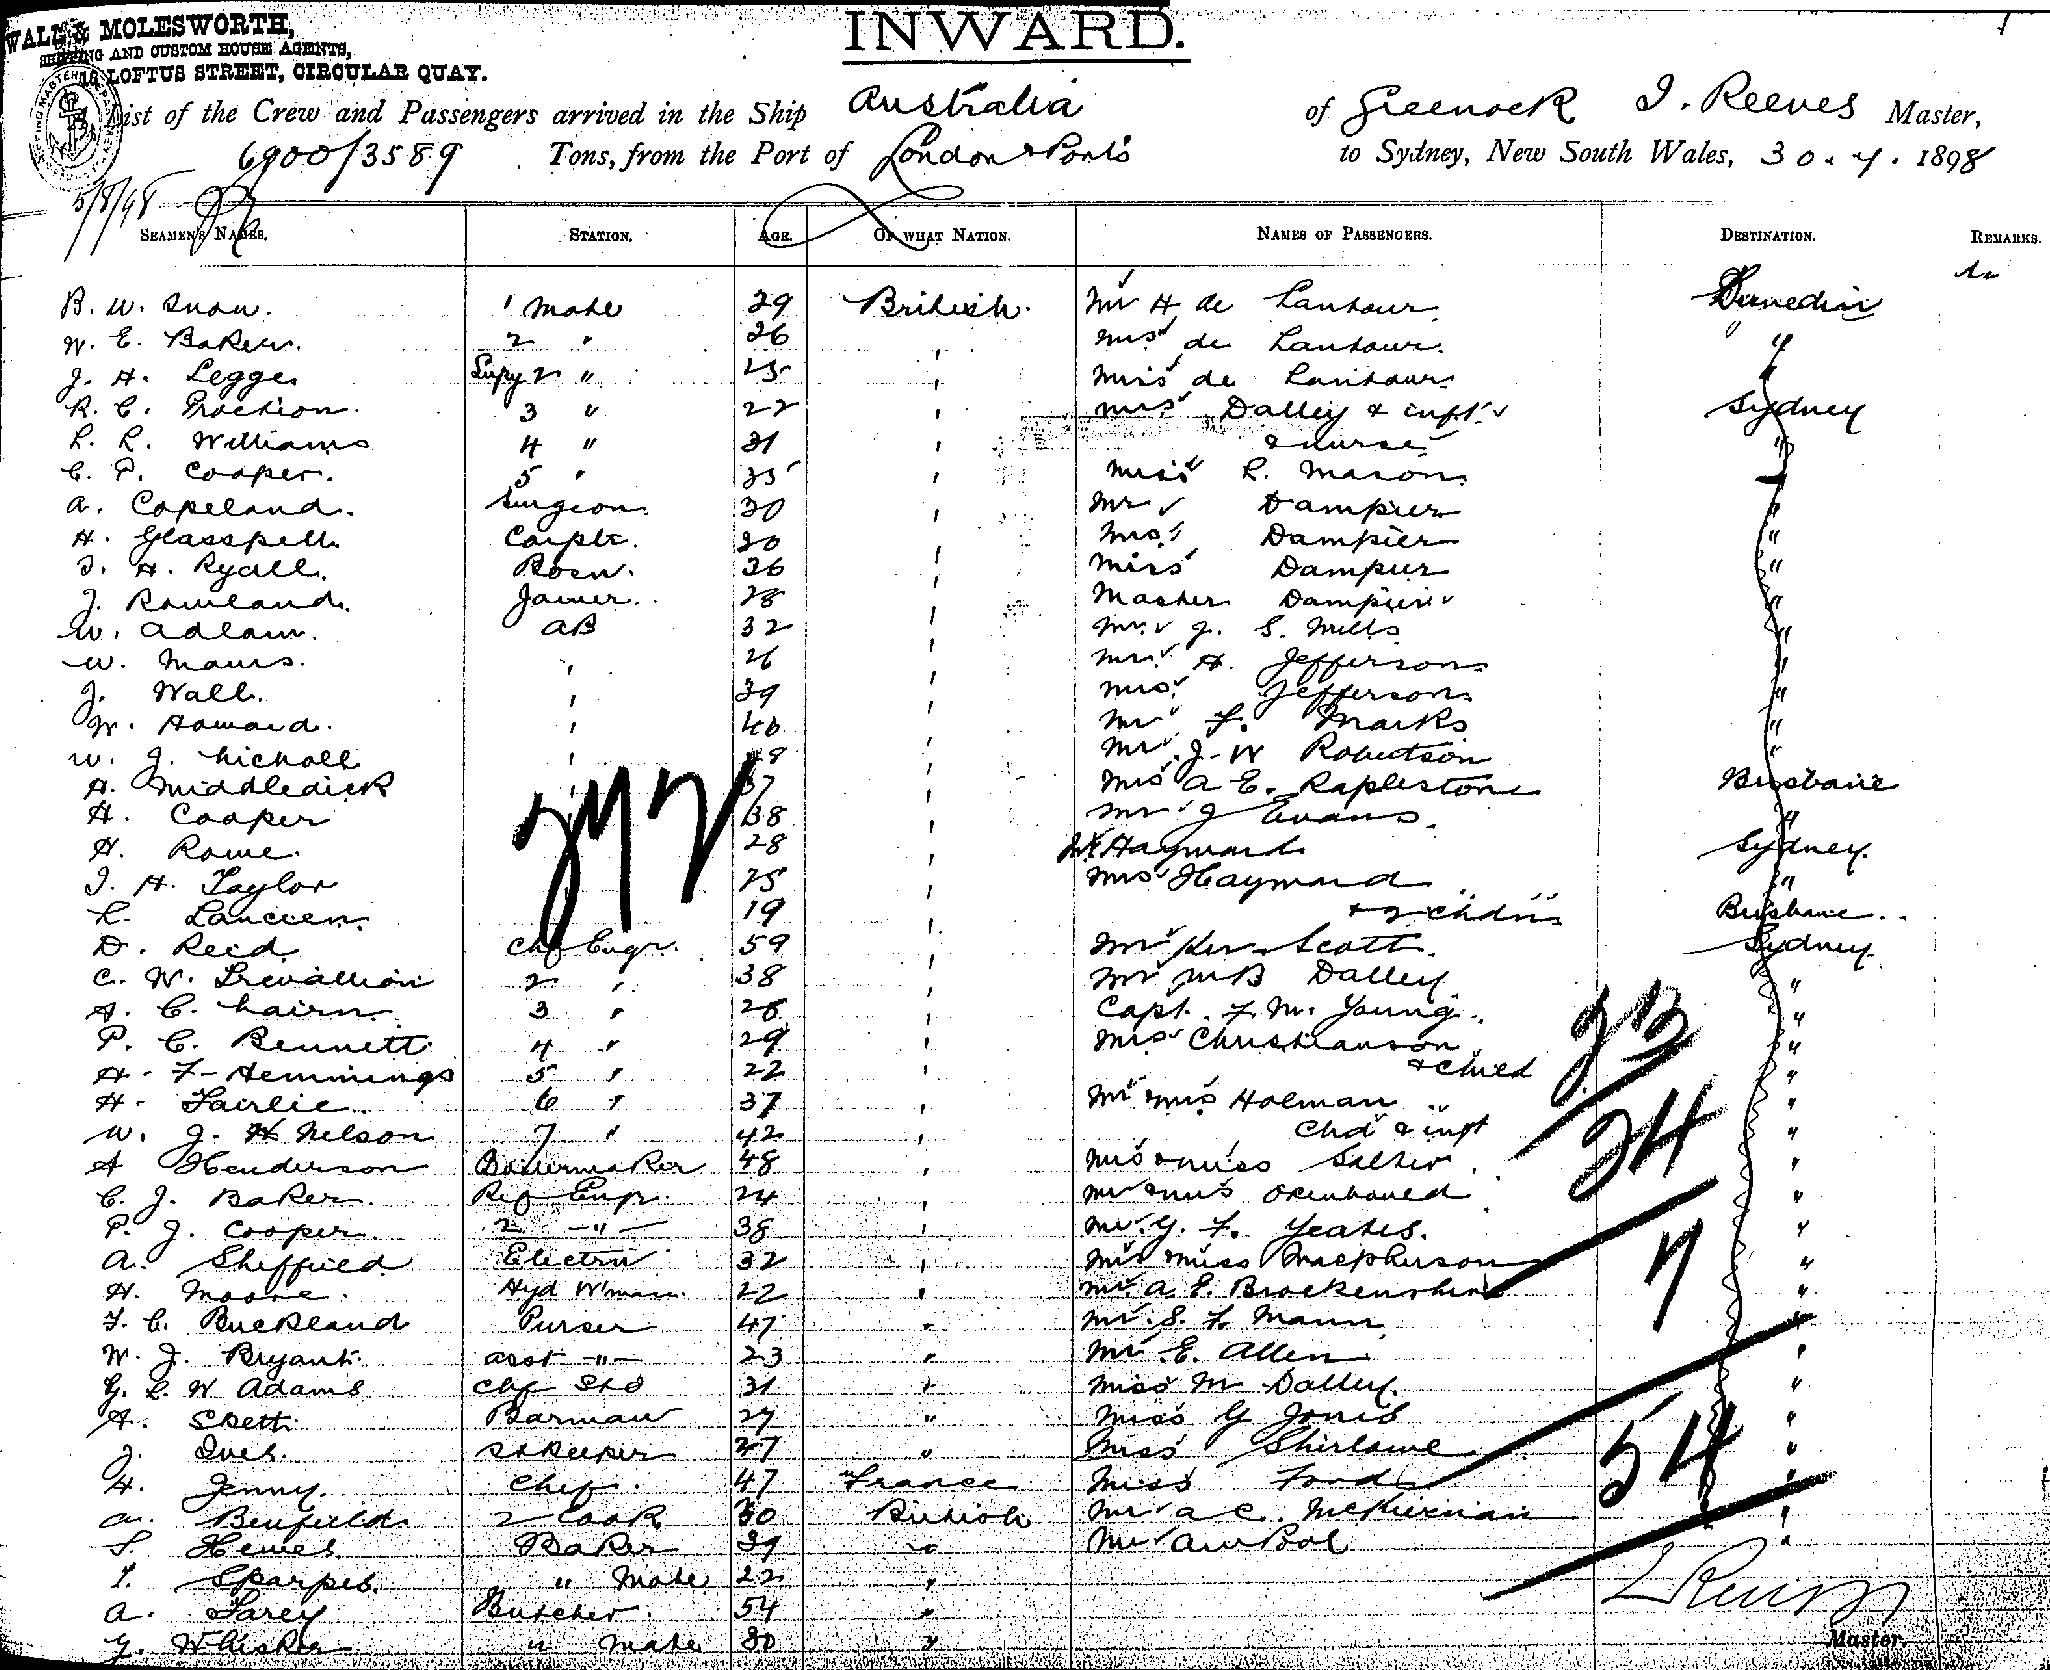 WALL & MOLESWORTH,
SHIPPING AND CUSTOM HOUSE AGENTS,
LOFTUS STREET, CIRCULAR QUAY.
INWARD.
List of the Crew and Passengers arrived in the Ship Australia of Greenock J. Reeves Master,
6900/3589 Tons, from the Port of London & Ports to Sydney, New South Wales, 30.7.1898
5/8/98
SEAMEN'S NAMES. STATION. AGE. OF WHAT NATION. NAMES OF PASSENGERS. DESTINATION. REMARKS.
B. W. Snow. 1 Mate 29 British. Mr H de Lautour Dunedin
W. E. Baker. 2 " 26 " Mrs de Lautour. "
J. H. Legge Supy 2 " 25 " Miss de Lautour "
R. C. 3 " 22 " Mrs Dalley & inft Sydney
L. R. Williams 4 " 31 " & nurse "
C. P. Cooper. 5 " " Miss R. Mason
A. Copeland. Surgeon. 30 " Mr Dampier "
H. Glasspell. Carptr. 30 " Mrs Dampier "
J. H. Ryall. Bosn. 36 " Miss Dampier "
J. Rowland. Joiner. 28 " Master Dampier "
W. Adlam. AB 32 " Mr J. S. Mills "
W. " 26 " Mr H. Jefferson "
J. Wall. " 39 " Mrs Jefferson "
W. Howard. " " Mr F. Marks "
W. J. Nicholl " " Mr J. W Robertson "
A. Middledick " 37 " Mrs A E. Raplestone Brisbane
H. Cooper 38 " Mr J Evans. "
H. Rowe. 28 " Mr Hayward Sydney.
J. H. Taylor 25 " Mrs Hayward "
L. 19 " & 2 chdn Brisbane
D. Reid. Chf Engr. 59 " Mr Ker Scott. Sydney.
C. W. Trevallion 2 " 38 " Mr W B Dalley "
A. C. Nairn. 3 " 28 " Capt. F. M. Young. "
P. C. Bennett 4 " 29 " Mrs Christianson "
H. F. Hemmings 5 " 22 " & child "
H. Fairlie. 6 " 37 " Mr Mrs Holman "
W. J. H Nelson 7 " 42 " Chd & inft "
A Henderson Boilermaker 48 " Mrs & Miss Salter. "
C. J. Baker. Ref Engr. 24 " Mr Mrs "
P. J. Cooper. 2 -"- 38 " Mr. G. F. Yeates. "
A. Sheffield Electrn 32 " Mrs Miss Macpherson "
H. Moore. Hyd W'man. 22 " Mr. A. E. Brockenshire "
F. C. Buckland Purser 47 " Mr. S. F. Mann "
W. J. Bryant. Asst -"- 23 " Mr E. Allen "
G. L. W Adams Chf Std 31 " Miss M Dalley. "
A. Skett. Barman 27 " Miss G Jones "
J. Ives. Stkeeper 27 " Miss Shirlawe "
H. Jenny. Chef. 47 France Miss Ford "
A. Benfield. 2 Cook 30 British Mr A C. McKiernan "
S. Hewes. Baker 39 " Mr "
T. Sparpes. " Mate 22 "
A. Farey Butcher. 54 "
G. Whisker " Mate 30 "
272
23
24
7
54
J Reeves
Master.